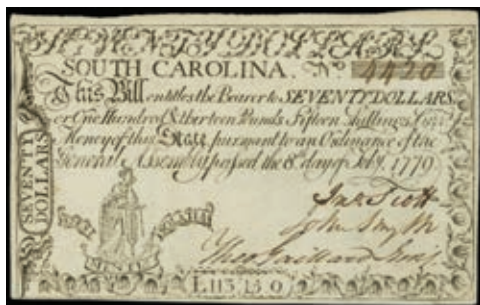 SEVENTY DOLLARS
SOUTH CAROLINA. No 4420
This Bill entitles the Bearer to SEVENTY DOLLARS
or One Hundred & thirteen Pounds Fifteen Shillings
Money of this State, pursuant to an Ordinance of the
General Assembly passed the 8th day of Feby. 1779
SEVENTY
DOLLARS
Jno. Scott
John Smyth
Theo Gaillard
L113 15 0